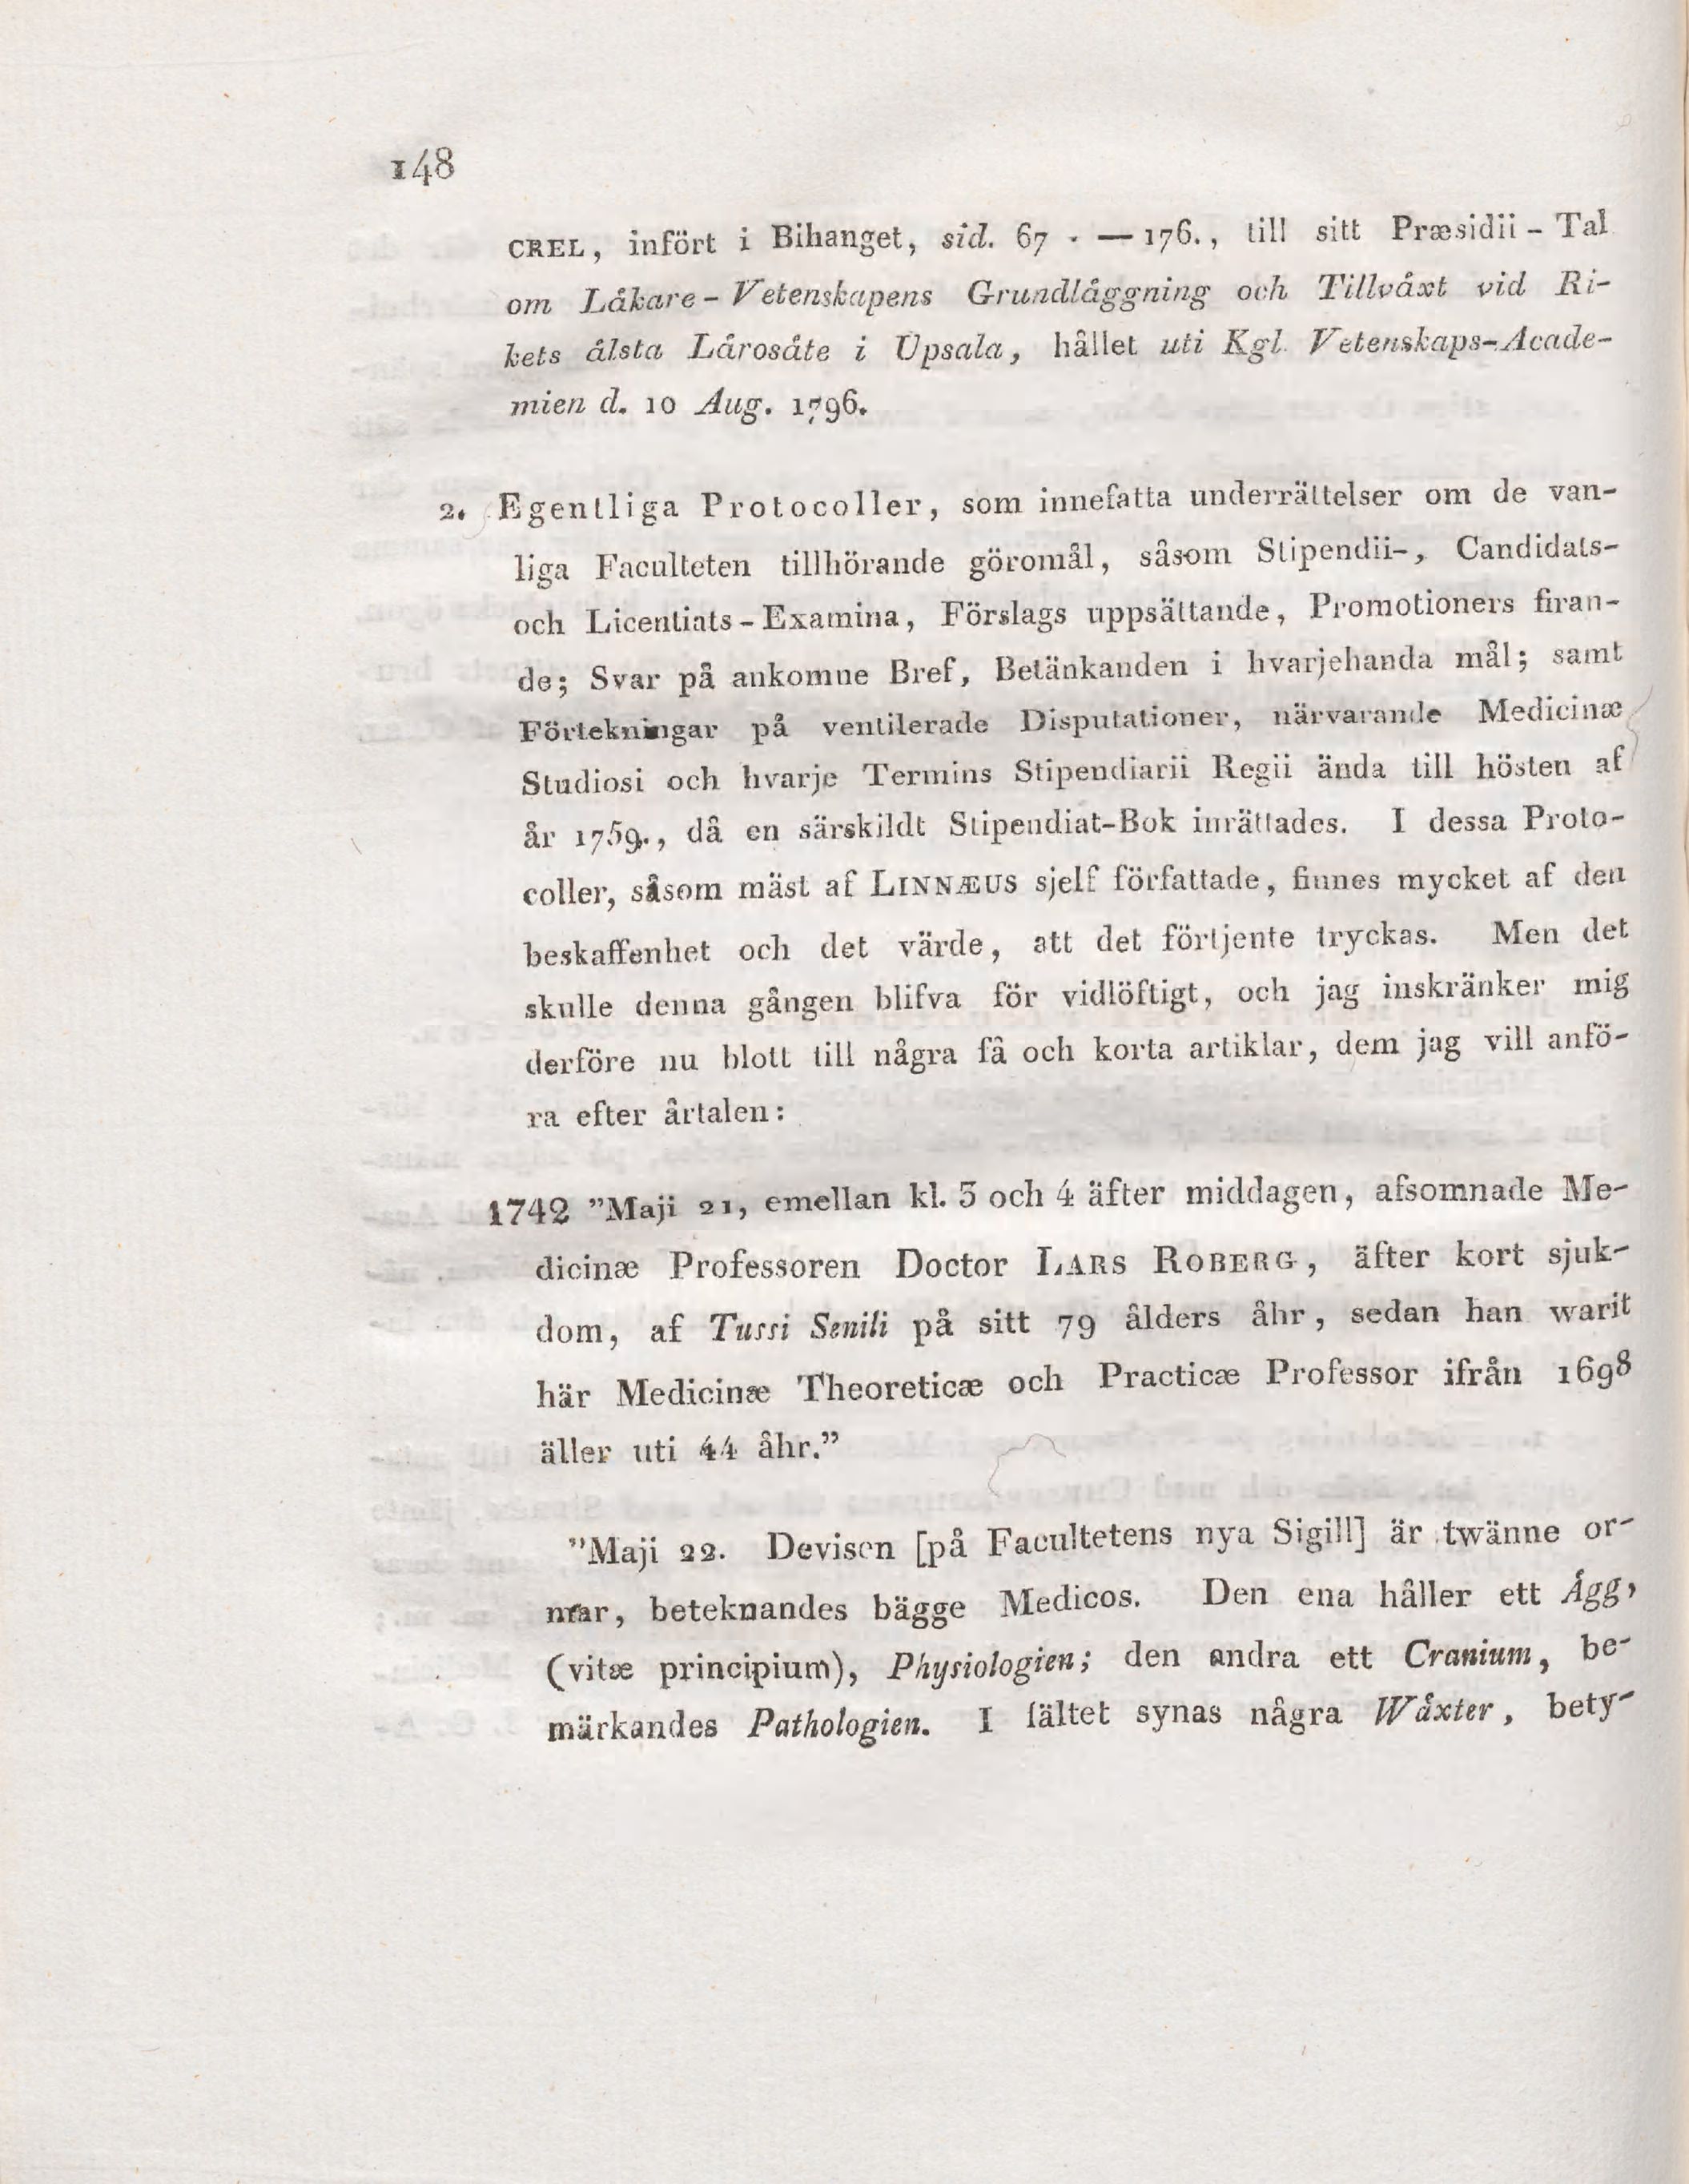 148
CREL, infört i Bihanget, sid. 67 - — 176., till sitt Præsidii - Tal
om Låkare - Vetenskapens Grundlåggning och Tillvåxt vid Ri-
kets ålsta Lårosåte i Upsala, hållet uti Kgl. Vetenskaps-Acade-
mien d. 10 Aug. 1796.
2. Egentliga Protocoller, som innefatta underrättelser om de van-
liga Faculteten tillhörande göromål, såsom Stipendii-, Candidats-
och Licentiats - Examina, Förslags uppsättande, Promotioners firan-
de; Svar på ankomne Bref, Betänkanden i hvarjehanda mål; samt
Förtekningar på ventilerade Disputationer, närvarande Medicinæ
Studiosi och hvarje Termins Stipendiarii Regii ända till hösten af
år 1759., då en särskildt Stipendiat-Bok inrättades. I dessa Proto-
coller, såsom mäst af LINNÆUS sjelf författade, finnes mycket af den
beskaffenhet och det värde, att det förtjente tryckas. Men det
skulle denna gången blifva för vidlöftigt, och jag inskränker mig
derföre nu blott till några få och korta artiklar, dem jag vill anfö-
ra efter årtalen:
1742 ”Maji 21, emellan kl. 3 och 4 äfter middagen, afsomnade Me-
dicinæ Professoren Doctor LARS ROBERG, äfter kort sjuk-
dom, af Tussi Senili på sitt 79 ålders åhr, sedan han warit
här Medicinæ Theoreticæ och Practicæ Professor ifrån 1698
äller uti 44 åhr.”
”Maji 22. Devisen [på Facultetens nya Sigill] är twänne or-
mar, beteknandes bägge Medicos. Den ena håller ett Ågg,
(vitæ principium), Physiologien; den andra ett Cranium, be-
märkandes Pathologien. I fältet synas några Wåxter, bety-